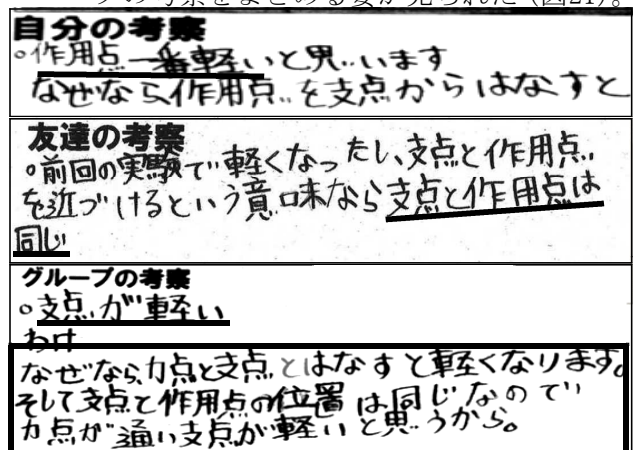 自分の考察
○作用点一番軽いと思います
なぜなら作用点を支点からはなすと
友達の考察
○前回の実験で軽くなったし、支点と作用点
を近づけるという意味なら支点と作用点は
同じ
グループの考察
○支点が軽い
わけ
なぜなら力点と支点とはなすと軽くなります。
そして支点と作用点の位置は同じなので
力点が遠い支点が軽いと思うから。